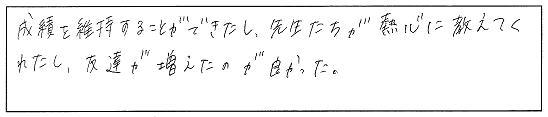 成績を維持することができたし、先生たちが熱心に教えてく
れたし、友達が増えたのが良かった。